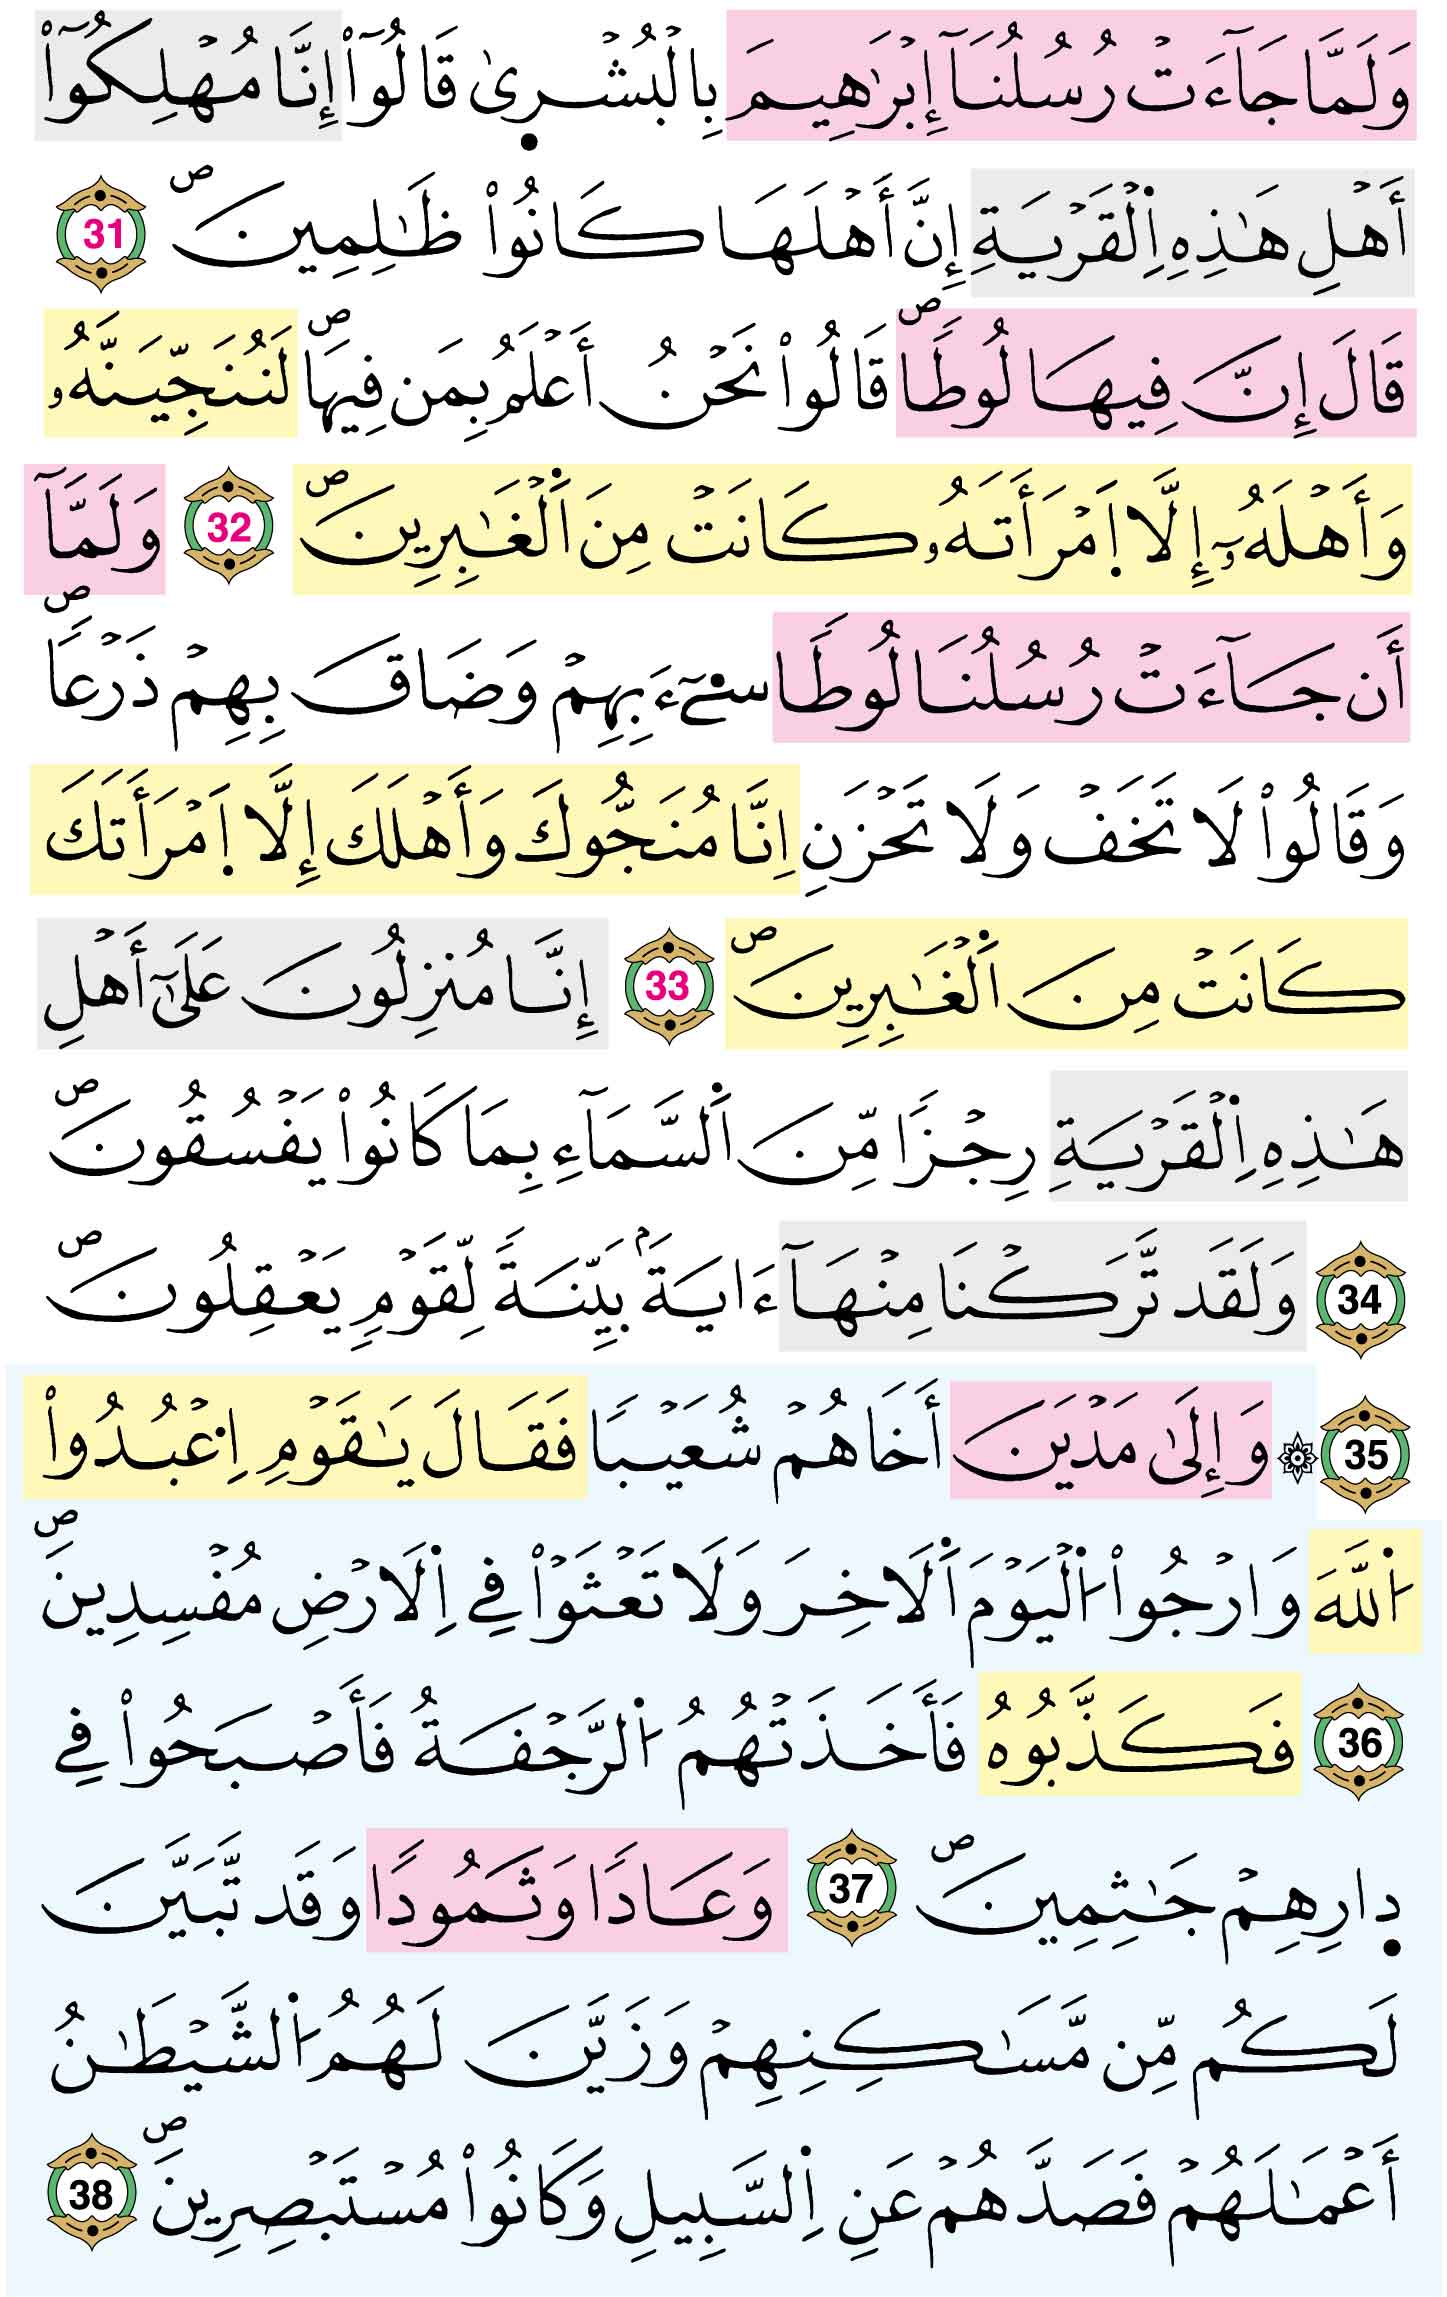 وَلَمَّا جَآءَتْ رُسُلُنَآ إِبْرَٰهِيمَ بِالْبُشْر۪يٰ قَالُوٓاْ إِنَّا مُهْلِكُوٓاْ
أَهْلِ هَٰذِهِ اِ۬لْقَرْيَةِ إِنَّ أَهْلَهَا كَانُواْ ظَٰلِمِينَۖ 31
قَالَ إِنَّ فِيهَا لُوطاٗۖ قَالُواْ نَحْنُ أَعْلَمُ بِمَن فِيهَاۖ لَنُنَجِّيَنَّهُۥ
وَأَهْلَهُۥٓ إِلَّا اَ۪مْرَأَتَهُۥ كَانَتْ مِنَ اَ۬لْغَٰبِرِينَۖ 32 وَلَمَّآ
أَن جَآءَتْ رُسُلُنَا لُوطاٗ سِےٓءَ بِهِمْ وَضَاقَ بِهِمْ ذَرْعاٗۖ
وَقَالُواْ لَا تَخَفْ وَلَا تَحْزَنِ اِنَّا مُنَجُّوكَ وَأَهْلَكَ إِلَّا اَ۪مْرَأَتَكَ
كَانَتْ مِنَ اَ۬لْغَٰبِرِينَۖ 33 إِنَّا مُنزِلُونَ عَلَىٰٓ أَهْلِ
هَٰذِهِ اِ۬لْقَرْيَةِ رِجْزاٗ مِّنَ اَ۬لسَّمَآءِ بِمَا كَانُواْ يَفْسُقُونَۖ
34 وَلَقَد تَّرَكْنَا مِنْهَآ ءَايَةَۢ بَيِّنَةٗ لِّقَوْمٖ يَعْقِلُونَۖ
35 ۞ وَإِلَىٰ مَدْيَنَ أَخَاهُمْ شُعَيْباٗ فَقَالَ يَٰقَوْمِ اِ۟عْبُدُواْ
اُ۬للَّهَ وَارْجُواْ اُ۬لْيَوْمَ اَ۬لَاخِرَ وَلَا تَعْثَوْاْ فِي اِ۬لَارْضِ مُفْسِدِينَۖ
36 فَكَذَّبُوهُ فَأَخَذَتْهُمُ اُ۬لرَّجْفَةُ فَأَصْبَحُواْ فِي
د۪ارِهِمْ جَٰثِمِينَۖ 37 وَعَاداٗ وَثَمُوداٗ وَقَد تَّبَيَّنَ
لَكُم مِّن مَّسَٰكِنِهِمْ وَزَيَّنَ لَهُمُ اُ۬لشَّيْطَٰنُ
أَعْمَٰلَهُمْ فَصَدَّهُمْ عَنِ اِ۬لسَّبِيلِ وَكَانُواْ مُسْتَبْصِرِينَۖ 38